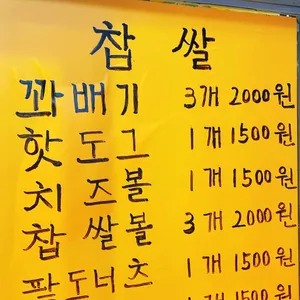 찹 쌀
꽈배기 3개 2000원
핫도그 1개 1500원
치즈볼 1개 1500원
찹쌀볼 3개 2000원
팥도너츠 1개 1500원
1개 1500원